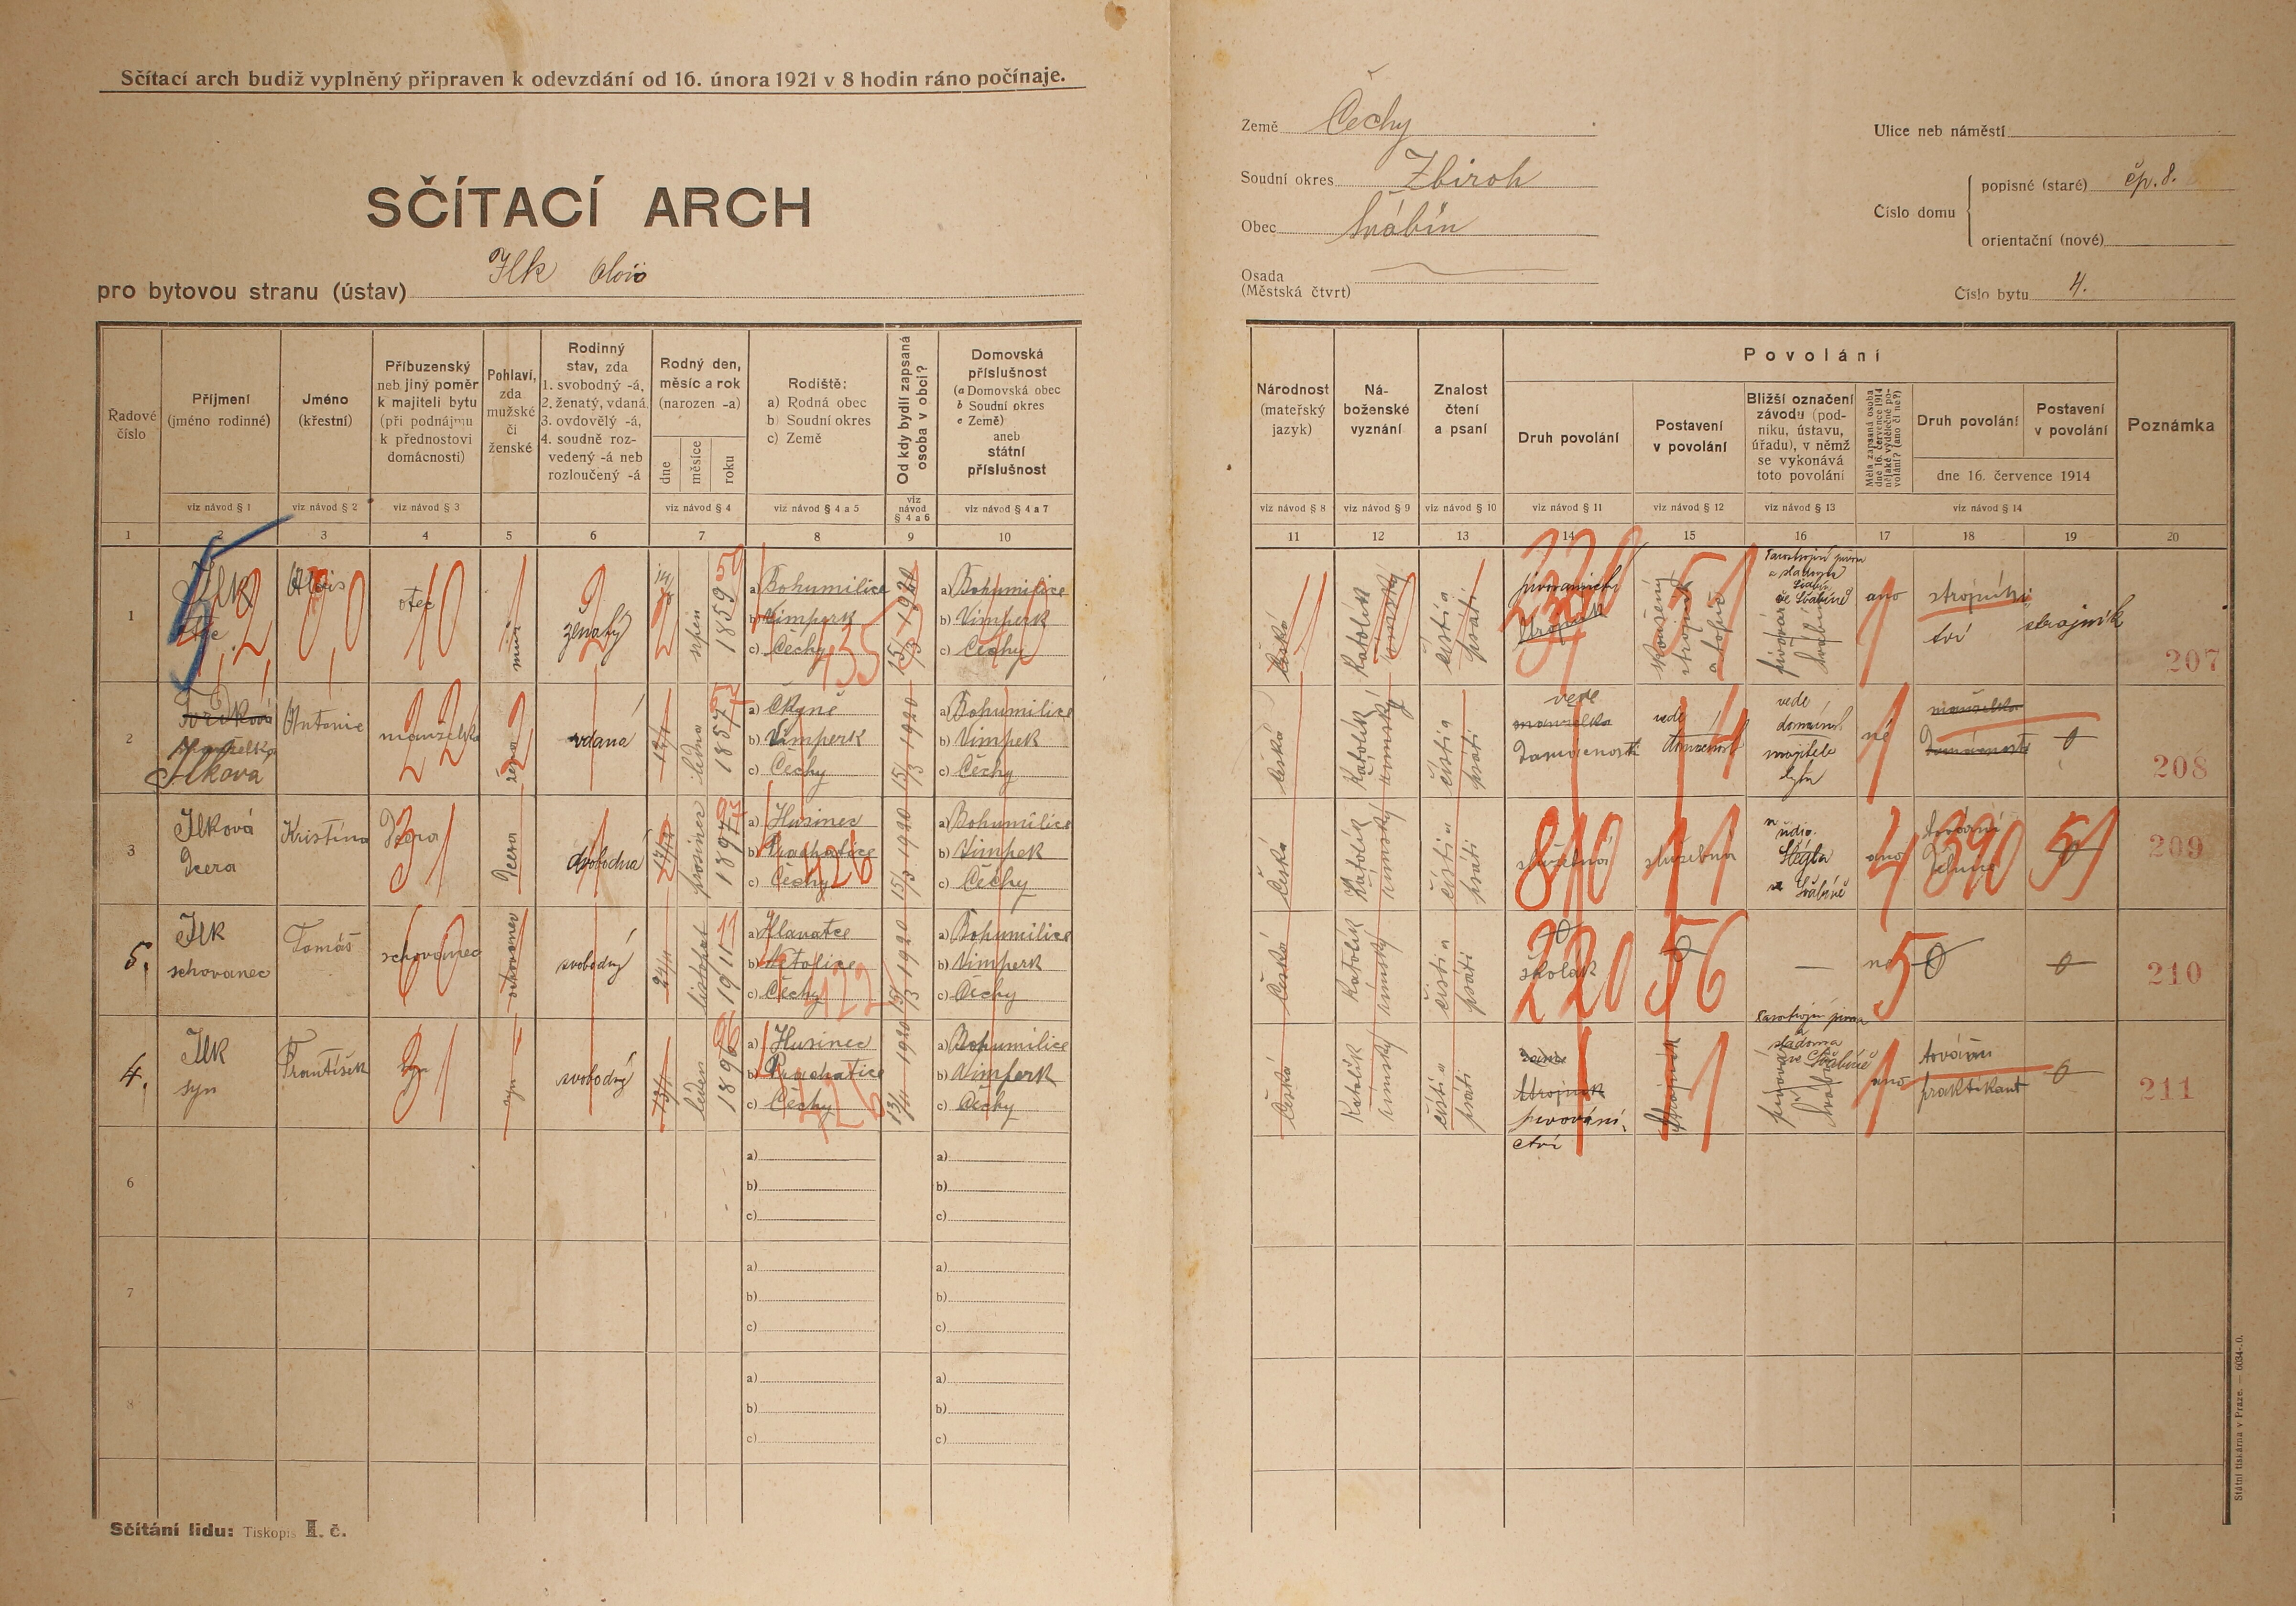 Sčítací arch budiž vyplněný připraven k odevzdání od 16. února 1921 v 8 hodin ráno počínaje.
SČÍTACÍ ARCH
pro bytovou stranu (ústav) Ilk Alois
Země Čechy
Soudní okres Zbiroh
Obec Švábín
Osada
(Městská čtvrt)
Ulice neb náměstí
Číslo domu
popisné (staré) čp. 8.
orientační (nové)
Číslo bytu 4.
Řadové číslo
Příjmení
(jméno rodinné)
Jméno
(křestní)
Příbuzenský
neb jiný poměr
k majiteli bytu
(při podnájmu
k přednostovi
domácnosti)
Pohlaví,
zda
mužské
či
ženské
Rodinný
stav, zda
1. svobodný -á,
2. ženatý, vdaná
3. ovdovělý -á,
4. soudně roz-
vedený -á neb
rozloučený -á
Rodný den,
měsíc a rok
(narozen -a)
dne
měsíce
roku
Rodiště:
a) Rodná obec
b) Soudní okres
c) Země
Od kdy bydlí zapsaná
osoba v obci?
Domovská
příslušnost
(a Domovská obec
b Soudní okres
c Země)
aneb
státní
příslušnost
Národnost
(mateřský
jazyk)
Ná-
boženské
vyznání
Znalost
čtení
a psaní
Povolání
Druh povolání
Postavení
v povolání
Bližší označení
závodu (pod-
niku, ústavu,
úřadu), v němž
se vykonává
toto povolání
Měla zapsaná osoba
dne 16. července 1914
nějaké výdělečné po-
volání? (ano či ne?)
Druh povolání
Postavení
v povolání
dne 16. července 1914
Poznámka
viz návod § 1
viz návod § 2
viz návod § 3
viz návod § 4
viz návod § 4 a 5
viz návod § 4 a 6
viz návod § 4 a 7
viz návod § 8
viz návod § 9
viz návod § 10
viz návod § 11
viz návod § 12
viz návod § 13
viz návod § 14
1 2 3 4 5 6 7 8 9 10 11 12 13 14 15 16 17 18 19 20
1 Ilk Alois otec muž ženatý srpen 1859
a) Bohumilice
b) Vimperk
c) Čechy
15/3 1920
a) Bohumilice
b) Vimperk
c) Čechy
Česká Katolík čísti a psáti
strojník a topič
ano strojník
207
2 Ilková Antonie manželka žena vdaná ledna 1857
a) Čkyně
b) Vimperk
c) Čechy
15/3 1920
a) Bohumilice
b) Vimpek
c) Čechy
Česká Katolík římský čísti a psáti
vede
manželka
Domácnosti
vede
domácnost
vede
majitele
bytu
né
manželka
0
208
3 Ilková
Dcera
Kristina Dcera Dcera svobodná prosinec 1897
a) Husinec
b) Prachatice
c) Čechy
15/3 1920
a) Bohumilice
b) Vimpek
c) Čechy
Česká Katolík římský čísti a psáti
služebná služebná
ano
810 390 51
209
5. Ilk
schovanec
Tomáš schovanec schovanec svobodný listopad 1911
b) Netolice
c) Čechy
15/3 1920
a) Bohumilice
b) Vimperk
c) Čechy
Česká Katolík římský čísti a psáti
školák
220 56
ne 0 0
210
4. Ilk
syn
František syn syn svobodný leden 1896
a) Husinec
b) Prachatice
c) Čechy
1920
a) Bohumilice
b) Vimperk
c) Čechy
Česká Katolík římský čísti a psáti
Strojník
strojník
ano
praktikant
0
211
6
a)
b)
c)
a)
b)
c)
7
a)
b)
c)
a)
b)
c)
8
a)
b)
c)
a)
b)
c)
Sčítání lidu: Tiskopis I. č.
Státní tiskárna v Praze. — 6034-.0.